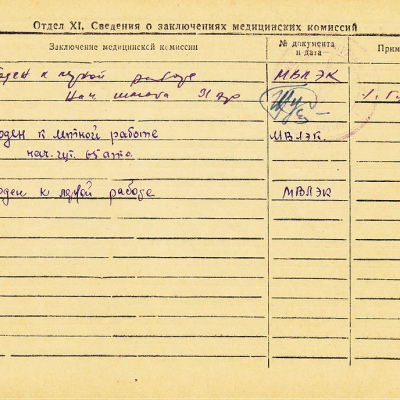 Отдел XI. Сведения о заключениях медицинских комиссий
Заключение медицинской комиссии № документа и дата Прим
ден к летной работе МВЛЭК
Нач. штаба
оден к летной работе МВЛЭК.
нач.
оден к летной работе МВЛЭК